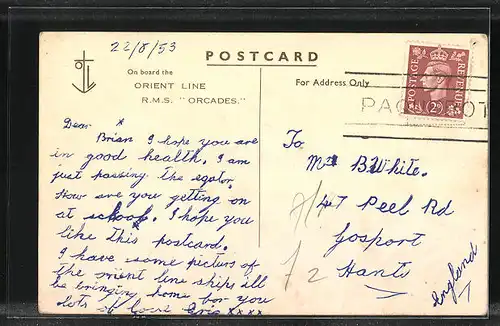 22/8/53
POSTCARD
On board the
ORIENT LINE
R.M.S. "ORCADES."
For Address Only
POSTAGE
REVENUE
2D
PAQ
OT
Dear
Brian I hope you are
in good health. I am
just passing the egator.
How are you getting on
at school. I hope you
like this postcard.
I have some pictures of
the orient line ships ill
be bringing home for you
lots of love Eric xxxx
To
Mr B. White.
47 Peel Rd
Gosport
Hants
England